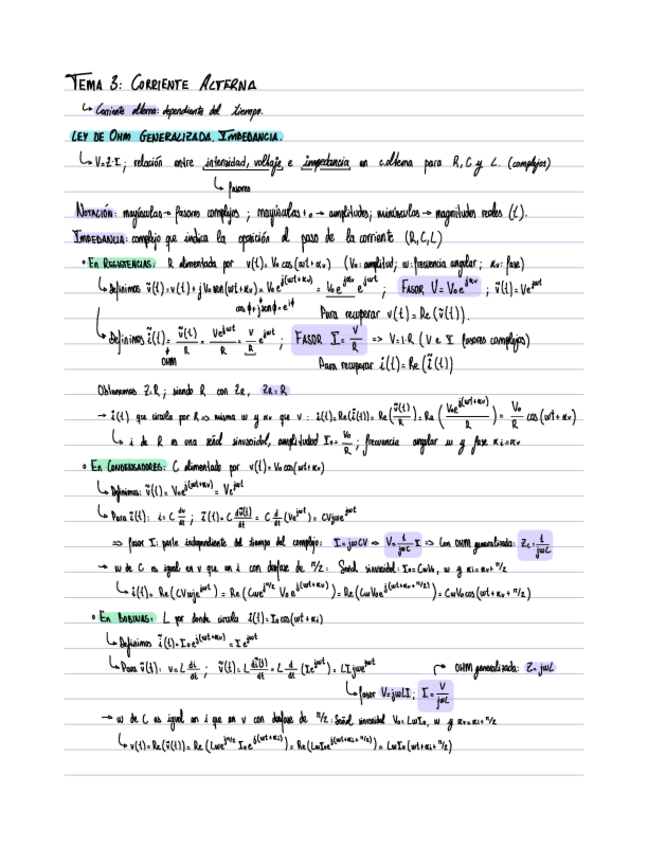 TEMA 3: CORRIENTE ALTERNA
↳ Corriente alterna: dependiente del tiempo.
LEY DE OHM GENERALIZADA. IMPEDANCIA.
↳ V=Z·I; relación entre intensidad, voltaje e impedancia en c.alterna para R, C y L. (complejos)
↳ fasores
NOTACIÓN: mayúsculas → fasores complejos; mayúsculas + o → amplitudes; minúsculas → magnitudes reales (t).
IMPEDANCIA: complejo que indica la oposición al paso de la corriente (R,C,L)
• EN RESISTENCIAS: R alimentada por v(t)=V₀cos(ωt+αᵥ) (V₀: amplitud; ω: frecuencia angular; αᵥ: fase)
↳ Definimos ṽ(t)=v(t)+jV₀sen(ωt+αᵥ)=V₀e^j(ωt+αᵥ)=V₀e^jαᵥ e^jωt; FASOR V=V₀e^jαᵥ; ṽ(t)=Ve^jωt
cosϕ+jsenϕ=e^jϕ Para recuperar v(t)=Re(ṽ(t)).
↳ Definimos ĩ(t)=ṽ(t)/R=Ve^jωt/R=V/R e^jωt; FASOR I=V/R => V=I·R (V e I fasores complejos)
OHM Para recuperar i(t)=Re(ĩ(t))
Obtenemos Z=R; siendo R con Z_R, Z_R=R
→ i(t) que circula por R => misma ω y αᵥ que v: i(t)=Re(ĩ(t))=Re(ṽ(t)/R)=Re(V₀e^j(ωt+αᵥ)/R)=V₀/R cos(ωt+αᵥ)
↳ i de R es una señal sinusoidal, amplitudad I₀=V₀/R; frecuencia angular ω y fase αᵢ=αᵥ
• EN CONDENSADORES: C alimentado por v(t)=V₀cos(ωt+αᵥ)
↳ Definimos: ṽ(t)=V₀e^j(ωt+αᵥ)=Ve^jωt
↳ Para ĩ(t): i=C dv/dt; ĩ(t)=C dṽ(t)/dt=C d/dt(Ve^jωt)=CVjωe^jωt
=> fasor I: parte independiente del tiempo del complejo: I=jωCV => V=1/jωC I => Con OHM generalizada: Z_C=1/jωC
→ ω de C es igual en v que en i con desfase de π/2: Señal sinusoidal: I₀=CωV₀, ω y αᵢ=αᵥ+π/2
↳ i(t)=Re(CVωje^jωt)=Re(Cωe^jπ/2 V₀e^j(ωt+αᵥ))=Re(CωV₀e^j(ωt+αᵥ+π/2))=CωV₀cos(ωt+αᵥ+π/2)
• EN BOBINAS: L por donde circula i(t)=I₀cos(ωt+αᵢ)
↳ Definimos ĩ(t)=I₀e^j(ωt+αᵢ)=Ie^jωt
↳ Para ṽ(t): v=L di/dt; ṽ(t)=L dĩ(t)/dt=L d/dt(Ie^jωt)=LIjωe^jωt OHM generalizada: Z=jωL
↳ fasor V=jωLI; I=V/jωL
→ ω de C es igual en i que en v con desfase de π/2: Señal sinusoidal V₀=LωI₀, ω y αᵥ=αᵢ+π/2
↳ v(t)=Re(ṽ(t))=Re(Lωe^jπ/2 I₀e^j(ωt+αᵢ))=Re(LωI₀e^j(ωt+αᵢ+π/2))=LωI₀(ωt+αᵢ+π/2)